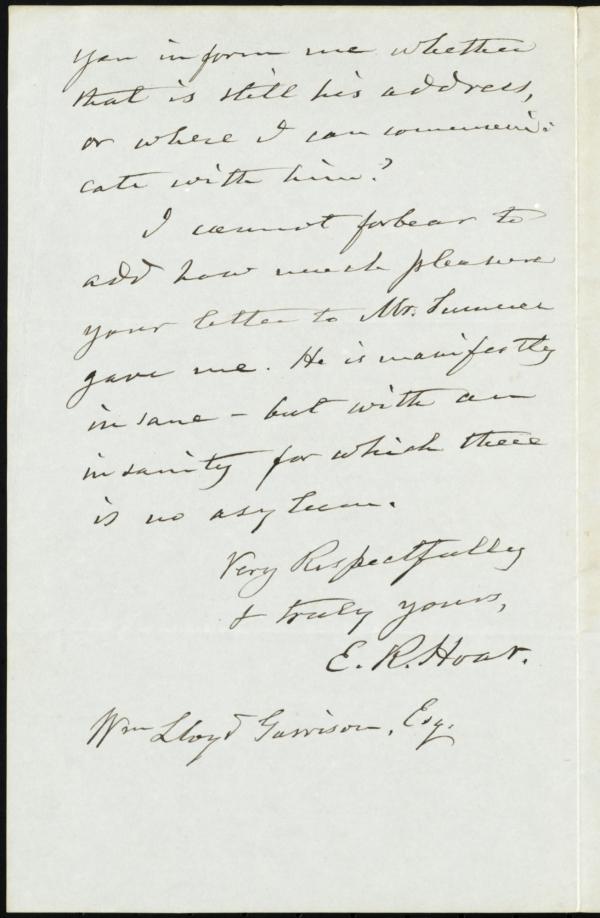 you inform me whether
that is still his address,
or where I can communi-
cate with him?
I cannot forbear to
add how much pleasure
your letter to Mr. Sumner
gave me. He is manifestly
insane - but with an
insanity for which there
is no asylum.
Very Respectfully
& truly yours,
E. R. Hoar.
Wm Lloyd Garrison, Esq.